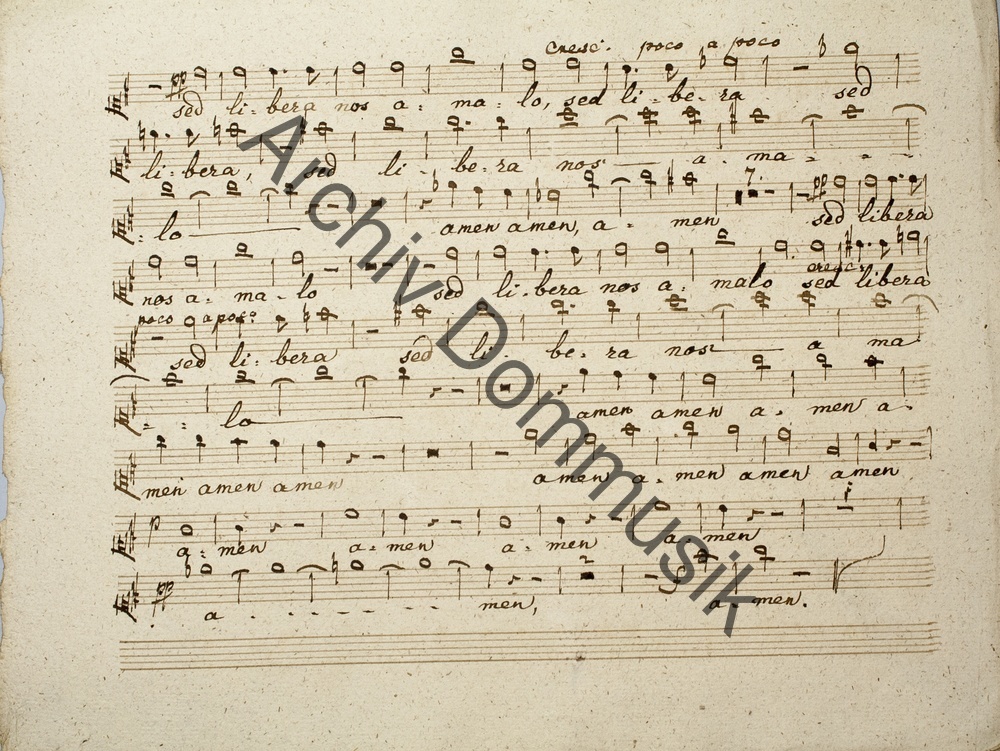 cresc: poco a poco
pp
sed li-bera nos a-malo, sed li-be-ra sed
li-bera, sed li-be-ra nos a-ma-
lo amen amen, a-men 7. pp sed libera
nos a-ma-lo sed li-bera nos a-malo sed libera
cresc:
poco a poco
sed li-bera sed li-be-ra nos a ma
lo amen amen a-men a-
men amen amen amen a-men amen amen
p
a-men a-men a-men a-men
pp
a men, a-men.
Archiv Dommusik